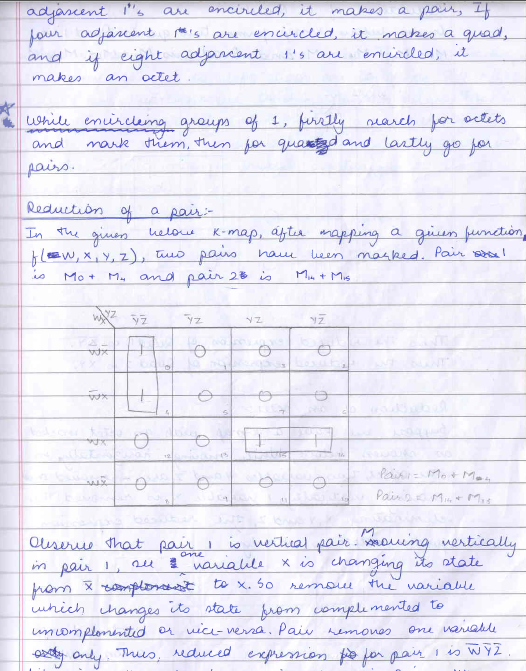 adjascent 1's are encircled, it makes a pair, If
four adjascent 1's are encircled, it makes a quad,
and if eight adjascent 1's are encircled, it
makes an octet.
While encircleing groups of 1, firstly search for octets
and mark them, then for quad and lastly go for
pairs.
Reduction of a pair:-
In the given below K-map, after mapping a given function,
f(W, X, Y, Z), two pairs have been marked. Pair 1
is M0 + M4 and pair 2 is M14 + M15
WX YZ ȲZ̄ ȲZ YZ YZ̄
W̄X̄ 1 0 0 0
W̄X 1 0 0 0
WX 0 0 1 1
WX̄ 0 0 0 0
Pair 1 = M0 + M4
Pair 2 = M14 + M15
Observe that pair 1 is vertical pair. Moving vertically
in pair 1, see one variable x is changing its state
from x̄ to x. So remove the variable
which changes its state from complemented to
uncomplemented or vice-versa. Pair removes one variable
only. Thus, reduced expression for pair 1 is W̄ȲZ̄.